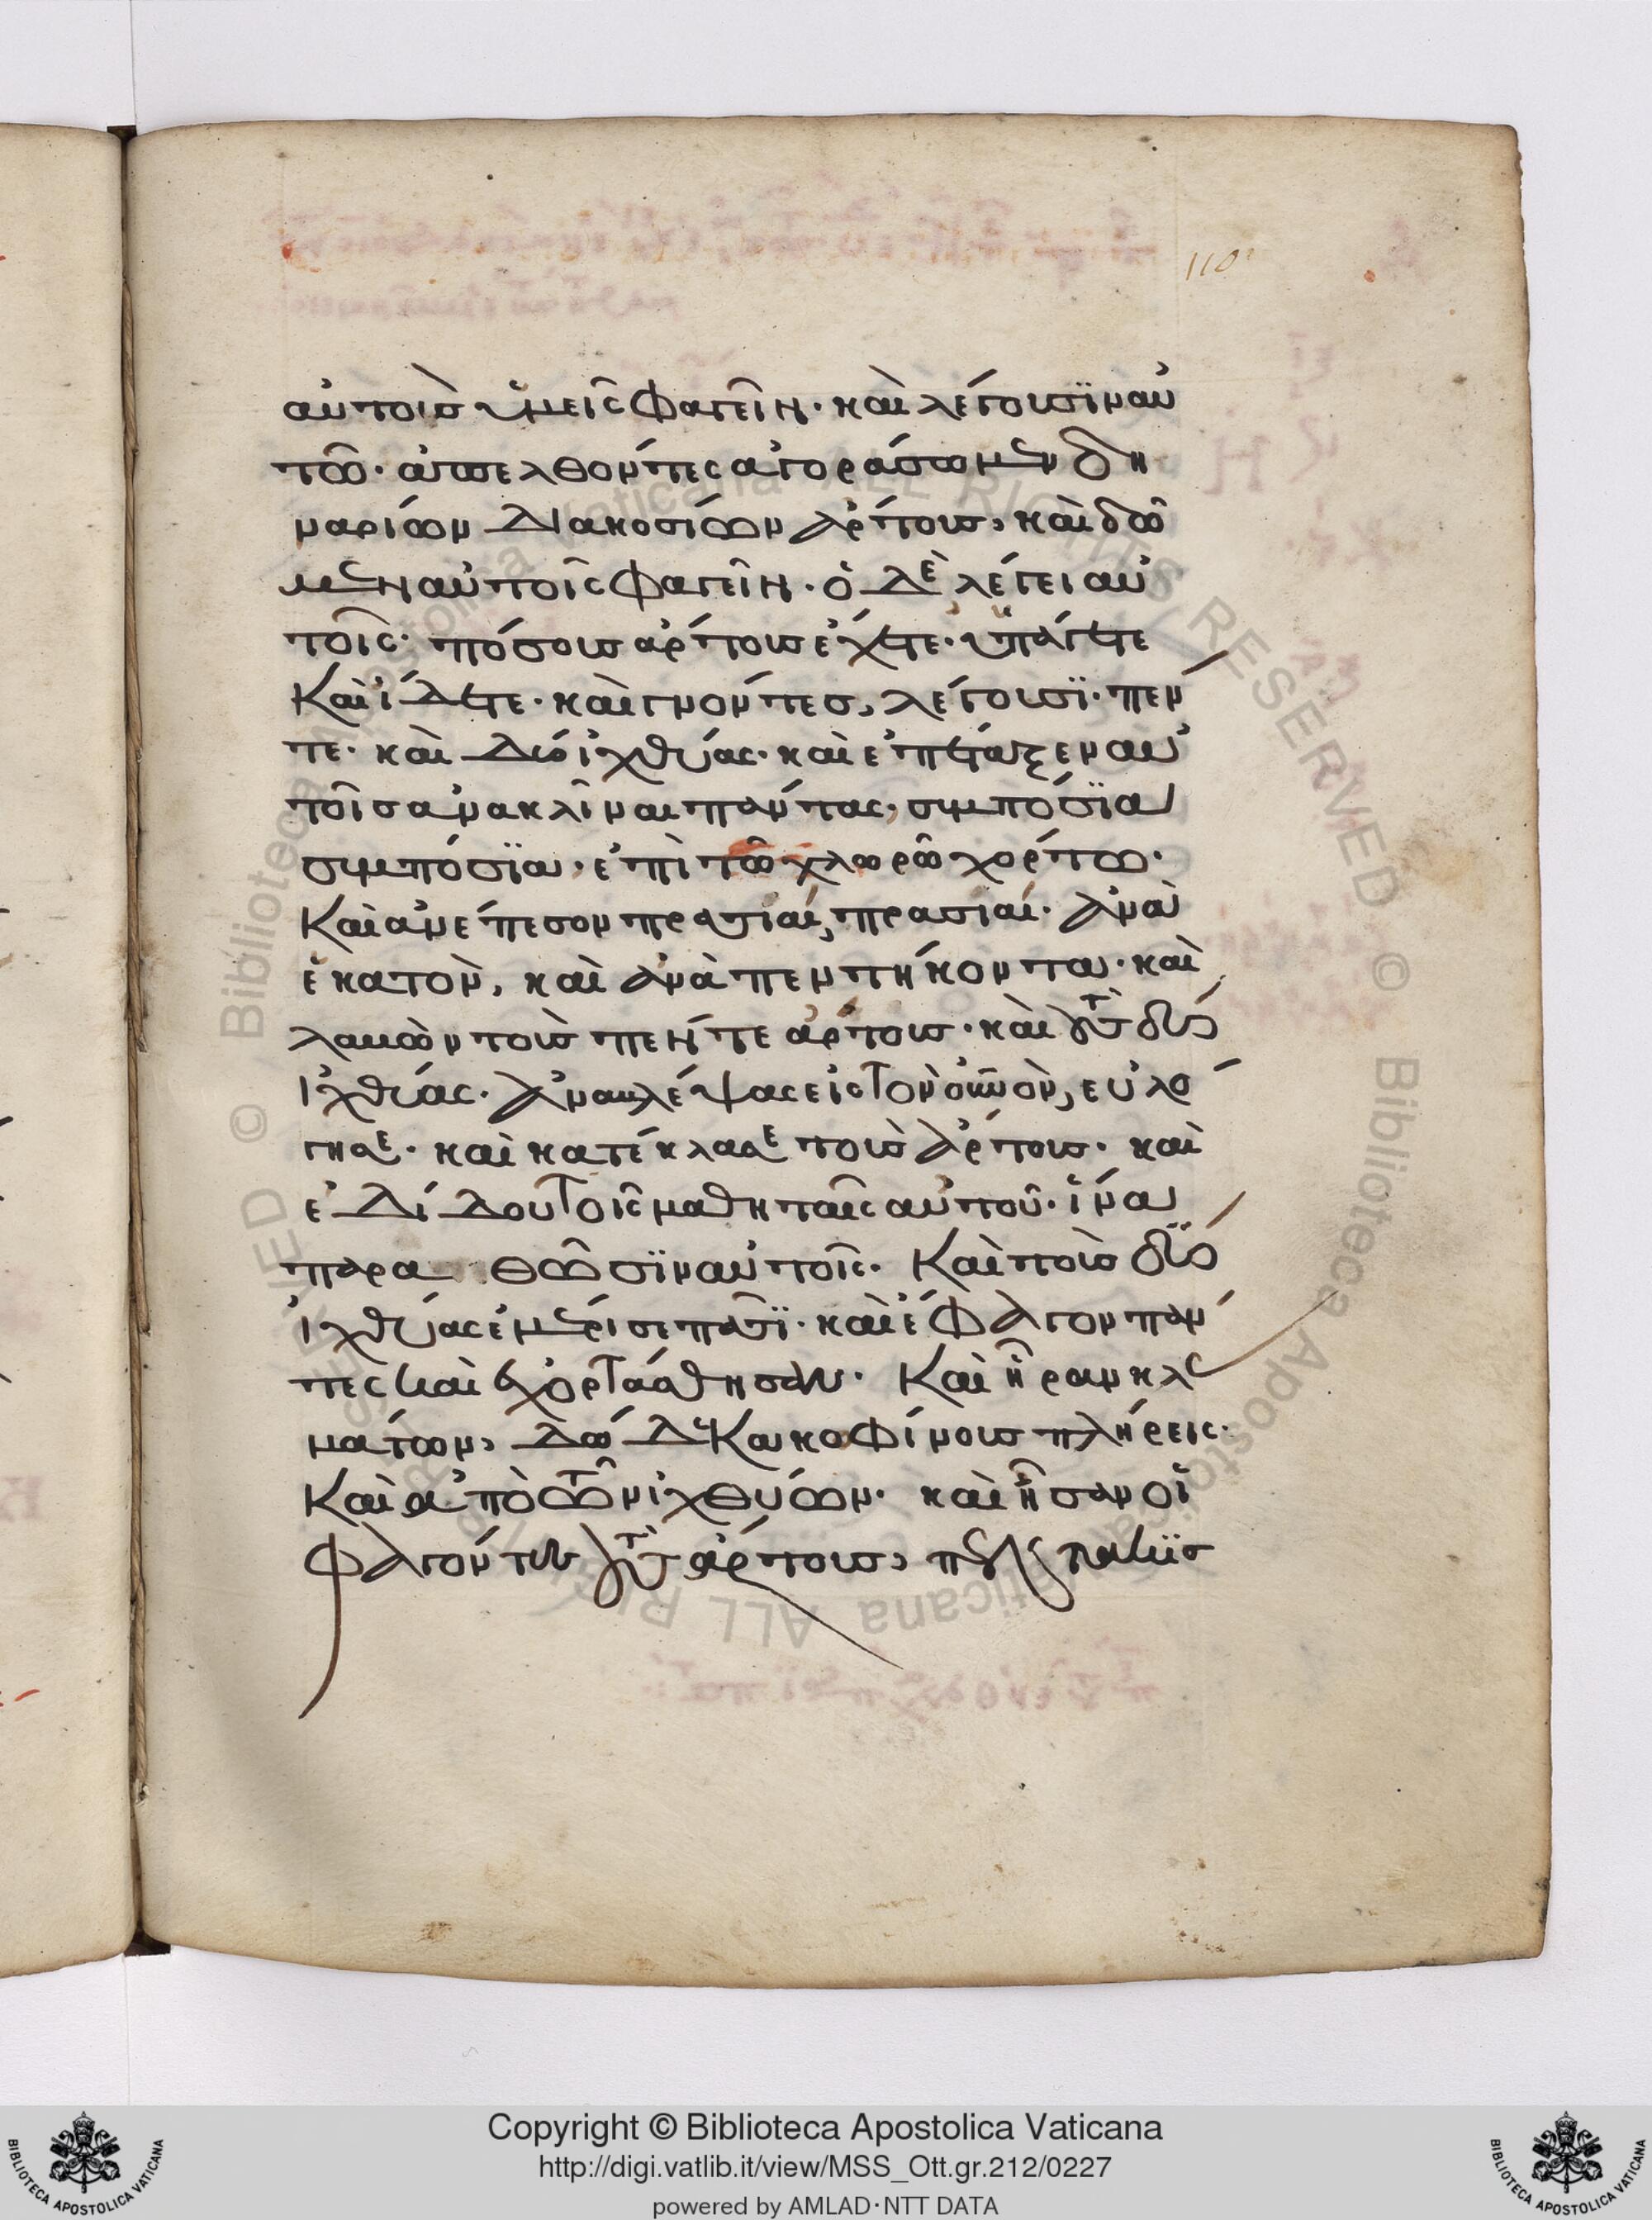 110
αὐτοῖς ὑμεῖς φαγεῖν· καὶ λέγουσϊν αὐ
τῶ· ἀπελθόντες ἀγοράσωμεν δη
ναρίων διακοσίων ἄρτους, καὶ δῶ
μεν αὐτοῖς φαγεῖν· ὁ δὲ λέγει αὐ
τοῖς· πόσους ἄρτους ἔχετε· ὑπάγετε
καὶ ἴδετε· καὶ γνόντες, λέγουσϊ· πέν
τε· καὶ δύο ἰχθύας· καὶ ἐπέταξεν αὐ
τοῖς ἀνακλῖναι πάντας, συμπόσϊα
συμπόσϊα· ἐπὶ τῶ χλωρῶ χόρτω·
Καὶ ἀνέπεσον πρασιαί, πρασιαί· ἀνὰ
ἑκατὸν, καὶ ἀνὰ πεντήκοντα· καὶ
λαβὼν τοὺς πέντε ἄρτους· καὶ τοὺς δύο
ἰχθύας· ἀναβλέψας εἰς τὸν οὐνὸν, εὐλό
γησε· καὶ κατέκλασε τοὺς ἄρτους· καὶ
ἐδίδου τοῖς μαθηταῖς αὐτοῦ· ἵνα
παραθῶσϊν αὐτοῖς· Καὶ τοὺς δύο
ἰχθύας ἐμέρισε πᾶσϊ· καὶ ἔφαγον πάν
τες καὶ ἐχορτάσθησαν· Καὶ ἦραν κλα
μάτων, δώδεκα κοφίνους πλήρεις·
Καὶ ἀπὸ τῶν ἰχθύων· καὶ ἦσαν οἱ
φαγόντες τοὺς ἄρτους,
Copyright © Biblioteca Apostolica Vaticana
http://digi.vatlib.it/view/MSS_Ott.gr.212/0227
powered by AMLAD·NTT DATA
BIBLIOTECA APOSTOLICA VATICANA
BIBLIOTECA APOSTOLICA VATICANA
© Biblioteca Apostolica Vaticana ALL RIGHTS RESERVED © Biblioteca Apostolica Vaticana ALL RIGHTS RESERVED